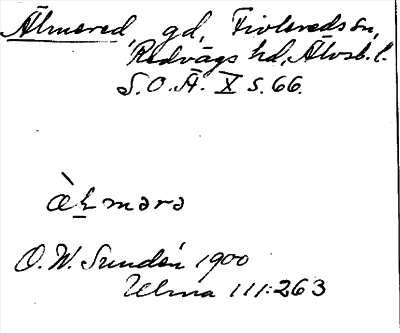 Älmered, gd, Fivlereds sn,
Redvägs hd, Älvsb. l.
S.O.Ä. X s. 66.
æ̀ḻmərə
O.W. Sundén 1900
Ulma 111:263